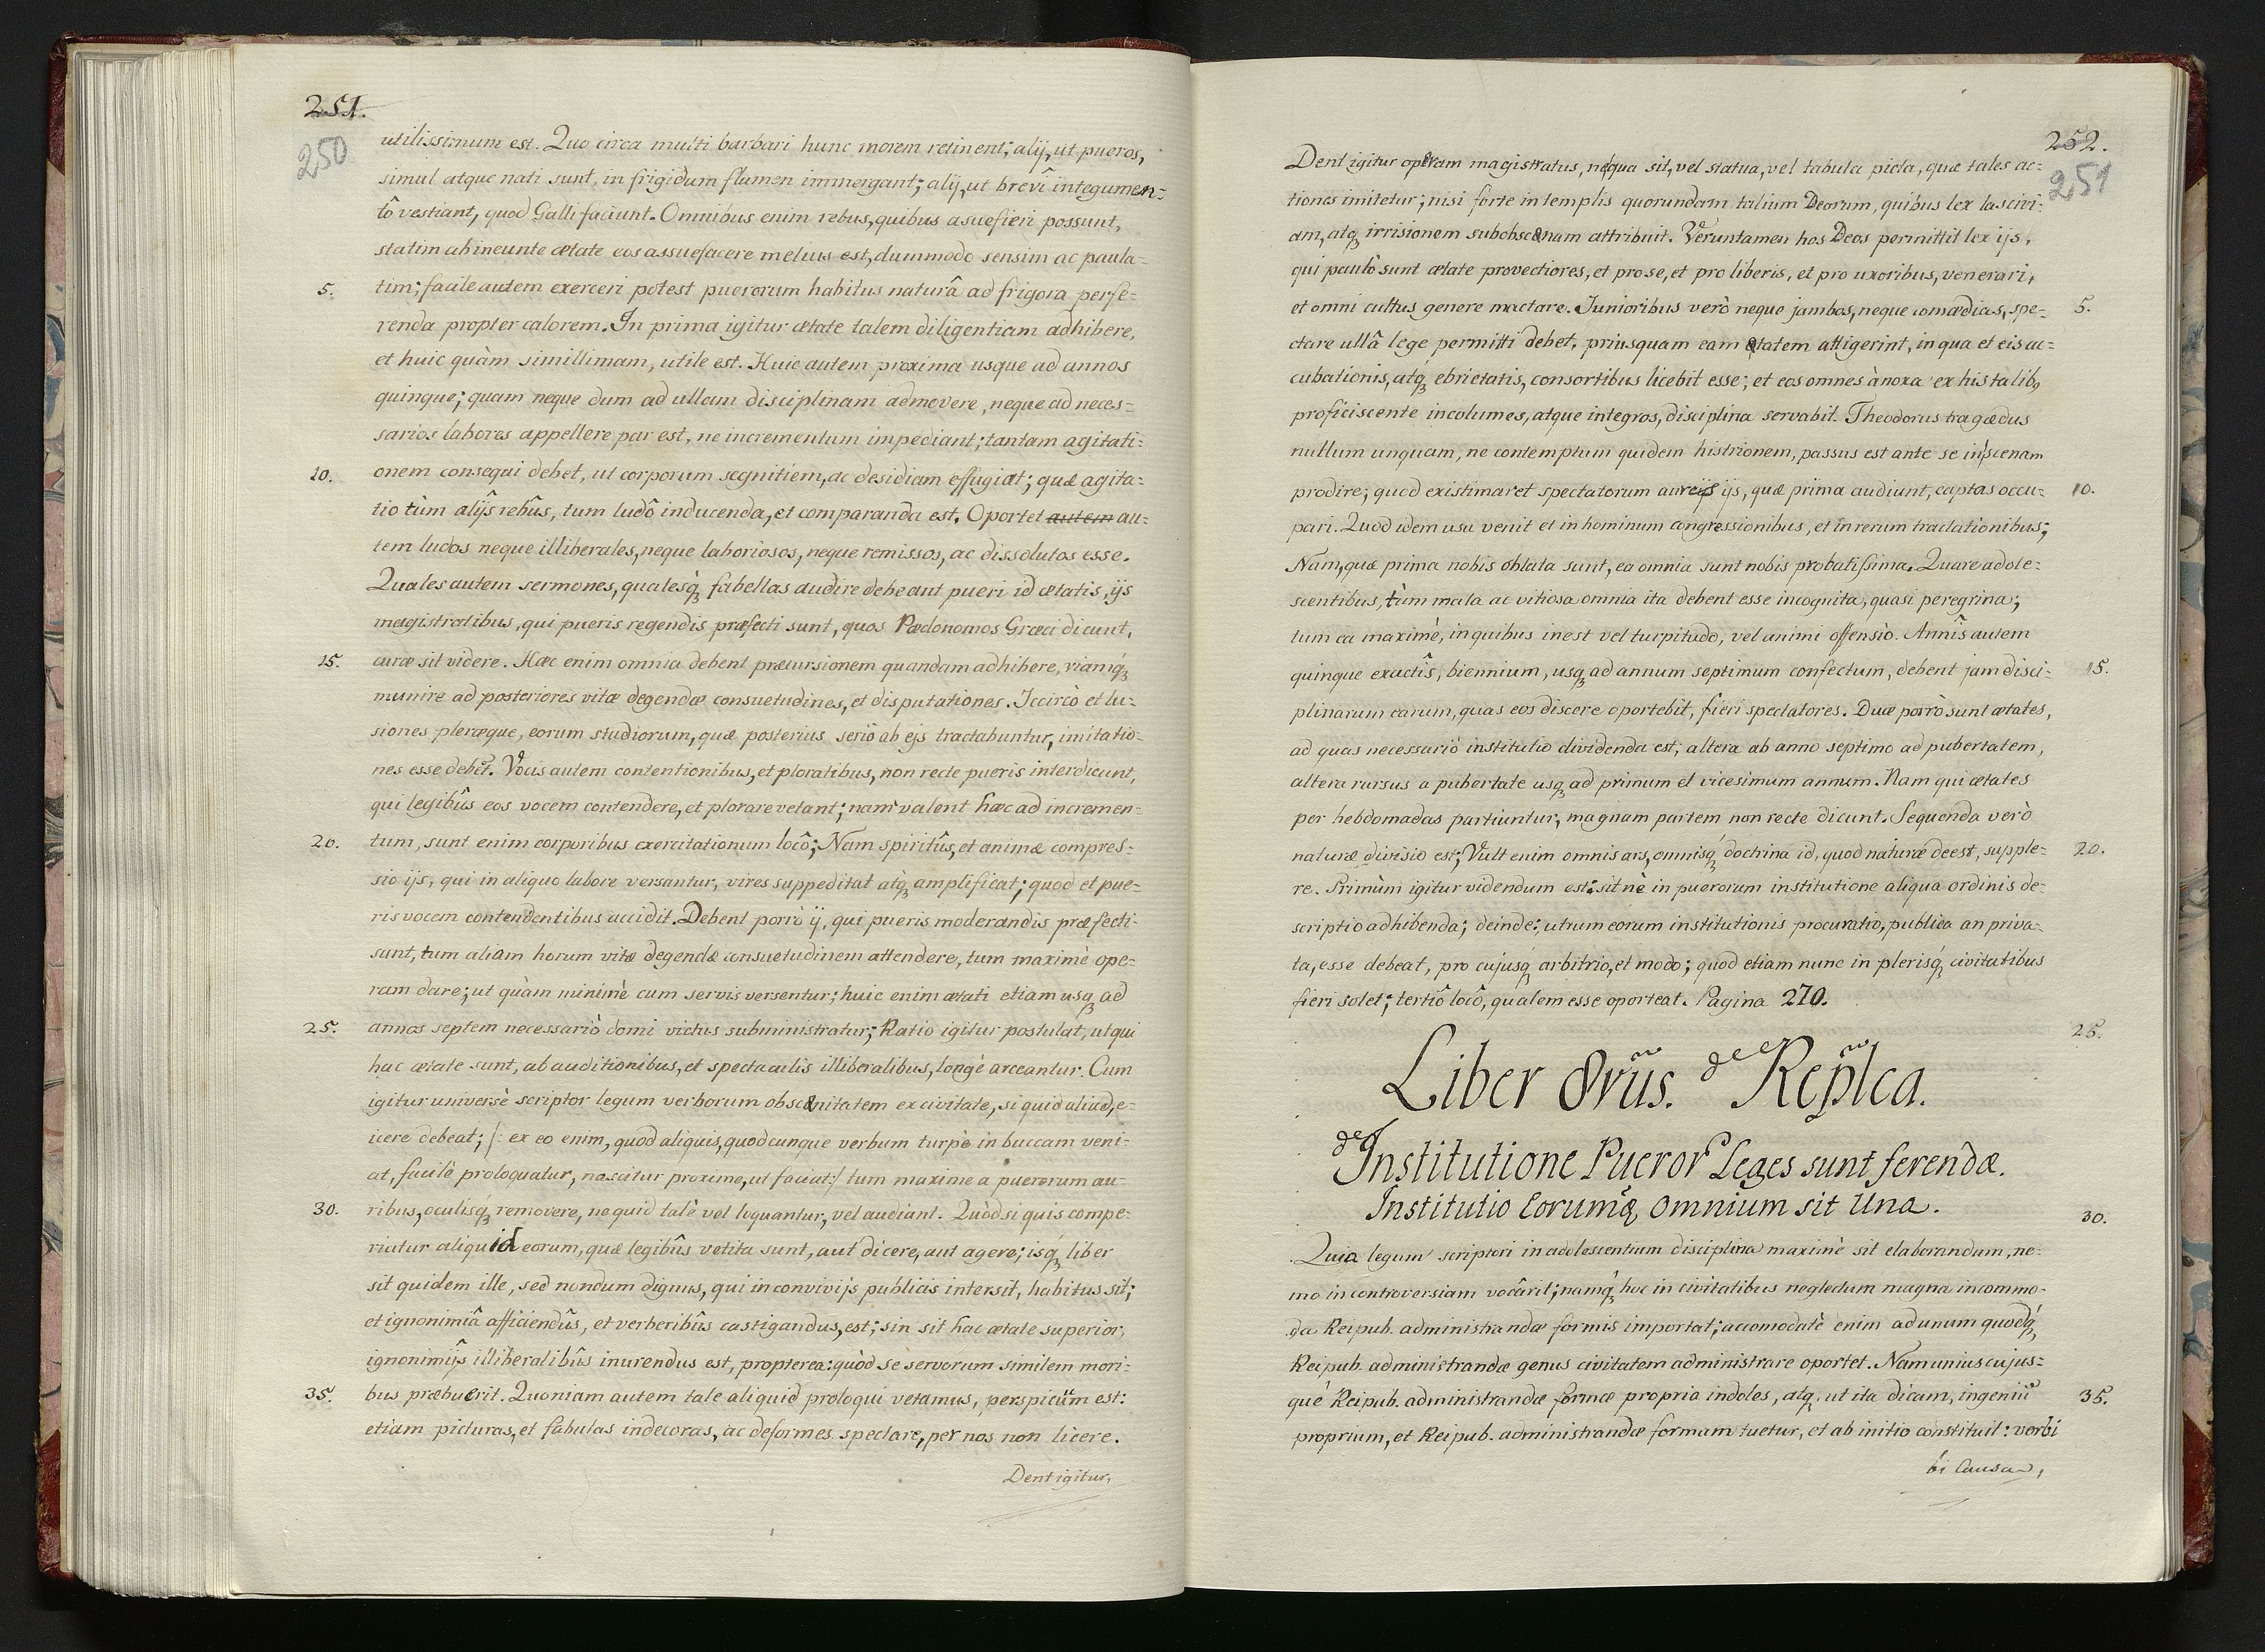 251.
250
utilissimum est. Quo circa multi barbari hunc morem retinent; alij, ut pueros,
simul atque nati sunt, in frigidum flumen immergant; alij, ut brevî integumen=
tô vestiant, quod Galli faciunt. Omnibus enim rebus, quibus asuefieri possunt,
statim ab ineunte ætate eos assuefacere melius est, dummodo sensim ac paula=
5. tim; facile autem exerceri potest puerorum habitus naturâ ad frigora perfe=
renda propter calorem. In prima igitur ætate talem diligentiam adhibere,
et huic quàm simillimam, utile est. Huic autem proxima usque ad annos
quinque; quam neque dum ad ullam disciplinam admovere, neque ad neces=
sarios labores appellere par est, ne incrementum impediant; tantam agitati=
10. onem consequi debet, ut corporum segnitiem, ac desidiam effugiat; quæ agita=
tio tùm alijs rebûs, tum ludô inducenda, et comparanda est. Oportet autem au=
tem ludos neque illiberales, neque laboriosos, neque remissos, ac dissolutos esse.
Quales autem sermones, qualesq́ fabellas audire debeant pueri id ætatis, ijs
magistratibus, qui pueris regendis præfecti sunt, quos Pædonomos Græci dicunt,
15. curæ sit videre. Hæc enim omnia debent præcursionem quandam adhibere, viamq́
munire ad posteriores vitæ degendæ consuetudines, et disputationes. Iccircò et lu=
siones pleræque, eorum studiorum, quæ posterius seriò ab ejs tractabuntur, imitatio=
nes esse debēt. Vocis autem contentionibus, et ploratibus, non recte pueris interdicunt,
qui legibûs eos vocem contendere, et plorare vetant; nam valent hæc ad incremen=
20. tum, sunt enim corporibus exercitationum locô; Nam spiritûs, et animæ compres=
sio ijs, qui in aliquo labore versantur, vires suppeditat atq́ amplificat; quod et pue=
ris vocem contendentibus accidit. Debent porrò ij, qui pueris moderandis præfecti
sunt, tum aliam horum vitæ degendæ consuetudinem attendere, tum maximè ope=
ram dare; ut quàm minimè cum servis versentur; huic enim ætati etiam usq́ ad
25. annos septem necessariò domi victus subministratur; Ratio igitur postulat, ut qui
hac ætate sunt, ab auditionibus, et spectaculis illiberalibus, longè arceantur. Cum
igitur universè scriptor legum verborum obscænitatem ex civitate, si quid aliud, e=
icere debeat; /: ex eo enim, quod aliquis, quodcunque verbum turpè in buccam veni=
at, facilè proloquatur, nascitur proxime, ut faciat :/ tum maxime a puerorum au=
30. ribus, oculisq́ removere, ne quid talè vel loquantur, vel audiant. Quòd si quis compe=
riatur aliquid eorum, quæ legibûs vetita sunt, aut dicere, aut agere; isq́ liber
sit quidem ille, sed nondum dignus, qui in convivijs publicis intersit, habitus sit;
et ignonimiâ afficiendûs, et verberibûs castigandus, est; sin sit hac ætate superior,
ignonimijs illiberalibûs inurendus est, propterea: quòd se servorum similem mori=
35. bus præbuerit. Quoniam autem tale aliquid proloqui vetamus, perspicūm est:
etiam picturas, et fabulas indecoras, ac deformes spectare, per nos non licere.
Dent igitur,
252.
251
Dent igitur operam magistratus, nequa sit, vel statua, vel tabula picta, quæ tales ac=
tiones imitetur; nisi forte in templis quorundam talium Deorum, quibus lex lascivi=
am, atq́ irrisionem subobscænam attribuit. Veruntamen hos Deos permittit lex ijs,
qui paulò sunt ætate provectiores, et pro se, et pro liberis, et pro uxoribus, venerari,
et omni cultus genere mactare. Junioribus verò neque jambos, neque comædias, spe= 5.
ctare ullâ lege permitti debet, priusquam eam ætatem attigerint, in qua et eis ac=
cubationis, atq́ ebrietatis, consortibus licebit esse; et eos omnes à noxa ex his talib9
proficiscente incolumes, atque integros, disciplina servabit. Theodorus tragædus
nullum unquam, ne contemptum quidem histrionem, passus est ante se in scenam
prodire; quod existimaret spectatorum aureis ijs, quæ prima audiunt, captas occu= 10.
pari. Quod idem usu venit et in hominum congressionibus, et in rerum tractationibus;
Nam, quæ prima nobis oblata sunt, ea omnia sunt nobis probatissima. Quare adole=
scentibus, tùm mala ac vitiosa omnia ita debent esse incognita, quasi peregrina;
tum ea maximè, in quibus inest vel turpitudo, vel animi offensio. Annîs autem
quinque exactîs, biennium, usq́ ad annum septimum confectum, debent jam disci= 15.
plinarum earum, quas eos discere oportebit, fieri spectatores. Duæ porrò sunt ætates,
ad quas necessariò institutio dividenda est, altera ab anno septimo ad pubertatem,
altera rursus a pubertate usq́ ad primum et vicesimum annum. Nam qui ætates
per hebdomadas partiuntur, magnam partem non recte dicunt. Sequenda verò
naturæ divisio est; Vult enim omnis ars, omnisq́ doctrina id, quod naturæ deest, supple= 20.
re. Primùm igitur videndum est: sit nè in puerorum institutione aliqua ordinis de=
scriptio adhibenda; deinde: utrum eorum institutionis procuratio, publica an priva=
ta, esse debeat, pro cujusq́ arbitrio, et modo; quod etiam nunc in plerisq́ civitatibus
fieri solet; tertiô locô, qualem esse oporteat. Pagina 270.
25.
Liber 8vus. de Replca.
de Institutione Pueror Leges sunt ferendæ.
Institutio Eorumq́ Omnium sit Una. 30.
Quia legum scriptori in adolescentium disciplina maximè sit elaborandum, ne=
mo in controversiam vocârit; namq́ hoc in civitatibus neglectum magna incommo=
da Reipub. administrandæ formis importat; accomodatè enim ad unum quodq́,
Reipub. administrandæ genus civitatem administrare oportet. Nam unius cujus=
què Reipub. administrandæ formæ propria indoles, atq́, ut ita dicam, ingeniū 35.
proprium, et Reipub. administrandæ formam tuetur, et ab initio constituit: verbi
Causa,